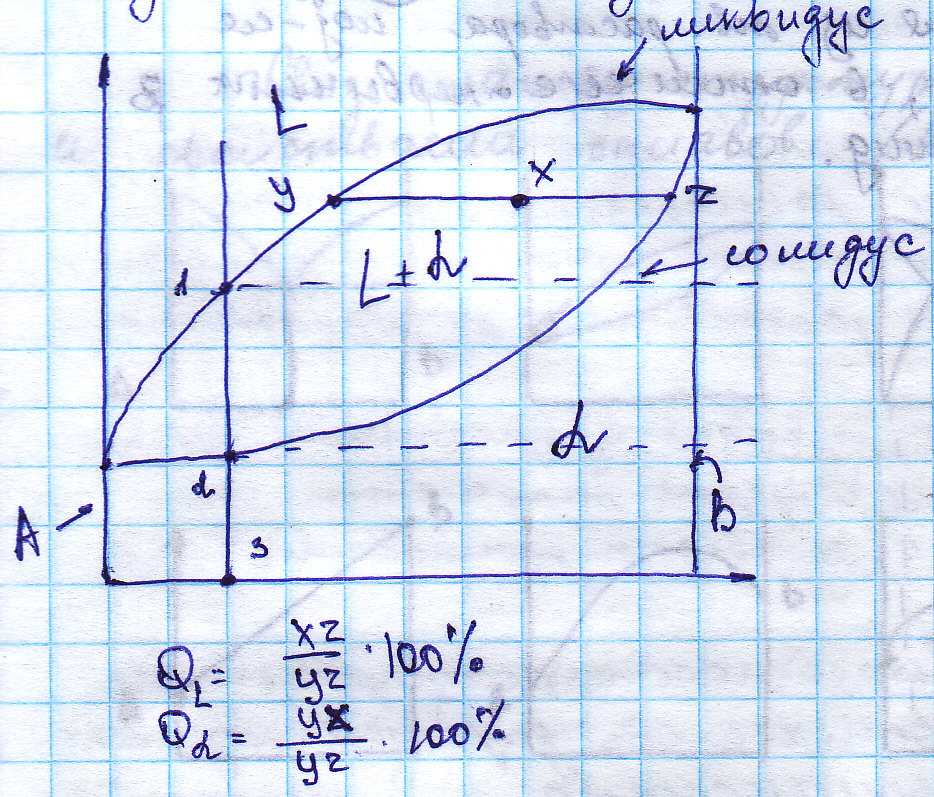 ликвидус
L
y
x
z
1
L + α
солидус
α
2
A
B
3
Q_L = xz/yz · 100%
Q_α = yx/yz · 100%